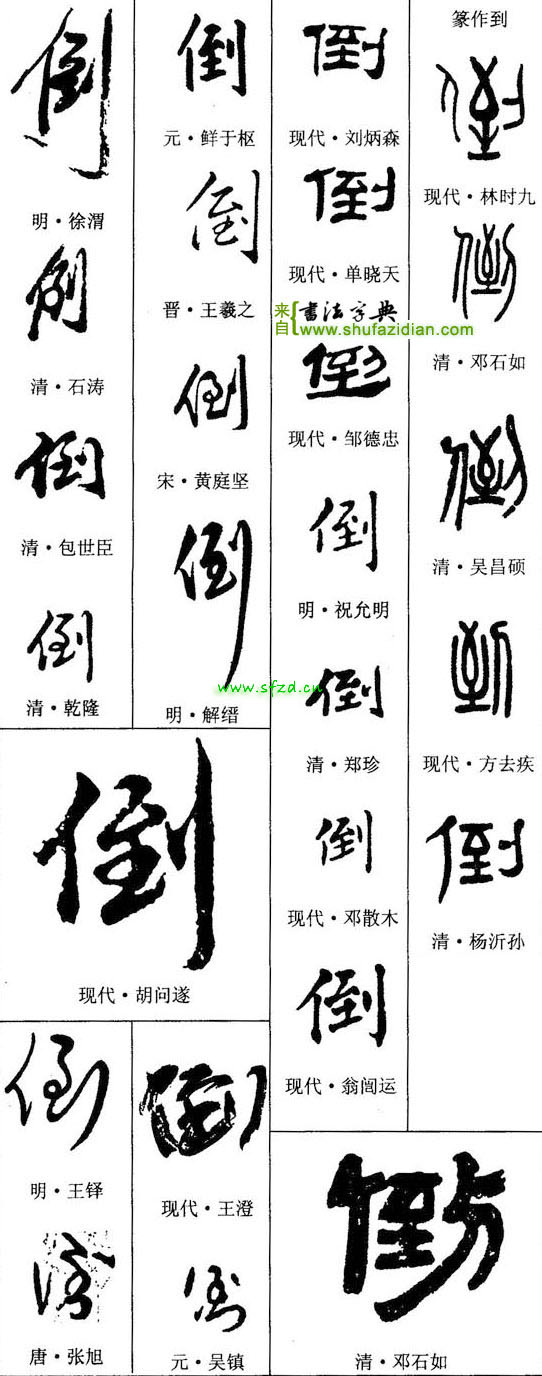 倒
明·徐渭
倒
清·石涛
倒
清·包世臣
倒
清·乾隆
倒
元·鲜于枢
倒
晋·王羲之
倒
宋·黄庭坚
倒
明·解缙
www.sfzd.cn
倒
现代·刘炳森
倒
现代·单晓天
来自{书法字典
www.shufazidian.com
倒
现代·邹德忠
倒
明·祝允明
倒
清·郑珍
倒
现代·邓散木
倒
现代·翁闿运
篆作到
倒
现代·林时九
倒
清·邓石如
倒
清·吴昌硕
到
现代·方去疾
倒
清·杨沂孙
倒
现代·胡问遂
倒
明·王铎
倒
唐·张旭
倒
现代·王澄
倒
元·吴镇
倒
清·邓石如